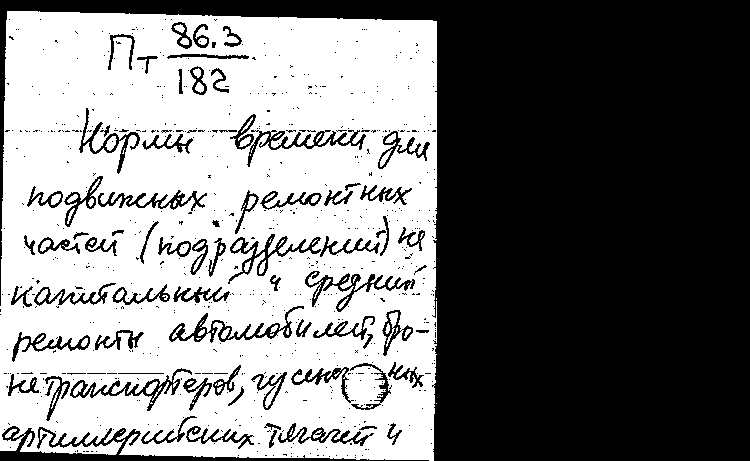 Пт 86.3
182
Нормы времени для
подвижных ремонтных
частей (подразделений) на
капитальный и средний
ремонты автомобилей, бро-
нетранспортеров, гусеничных
артиллерийских тягачей и